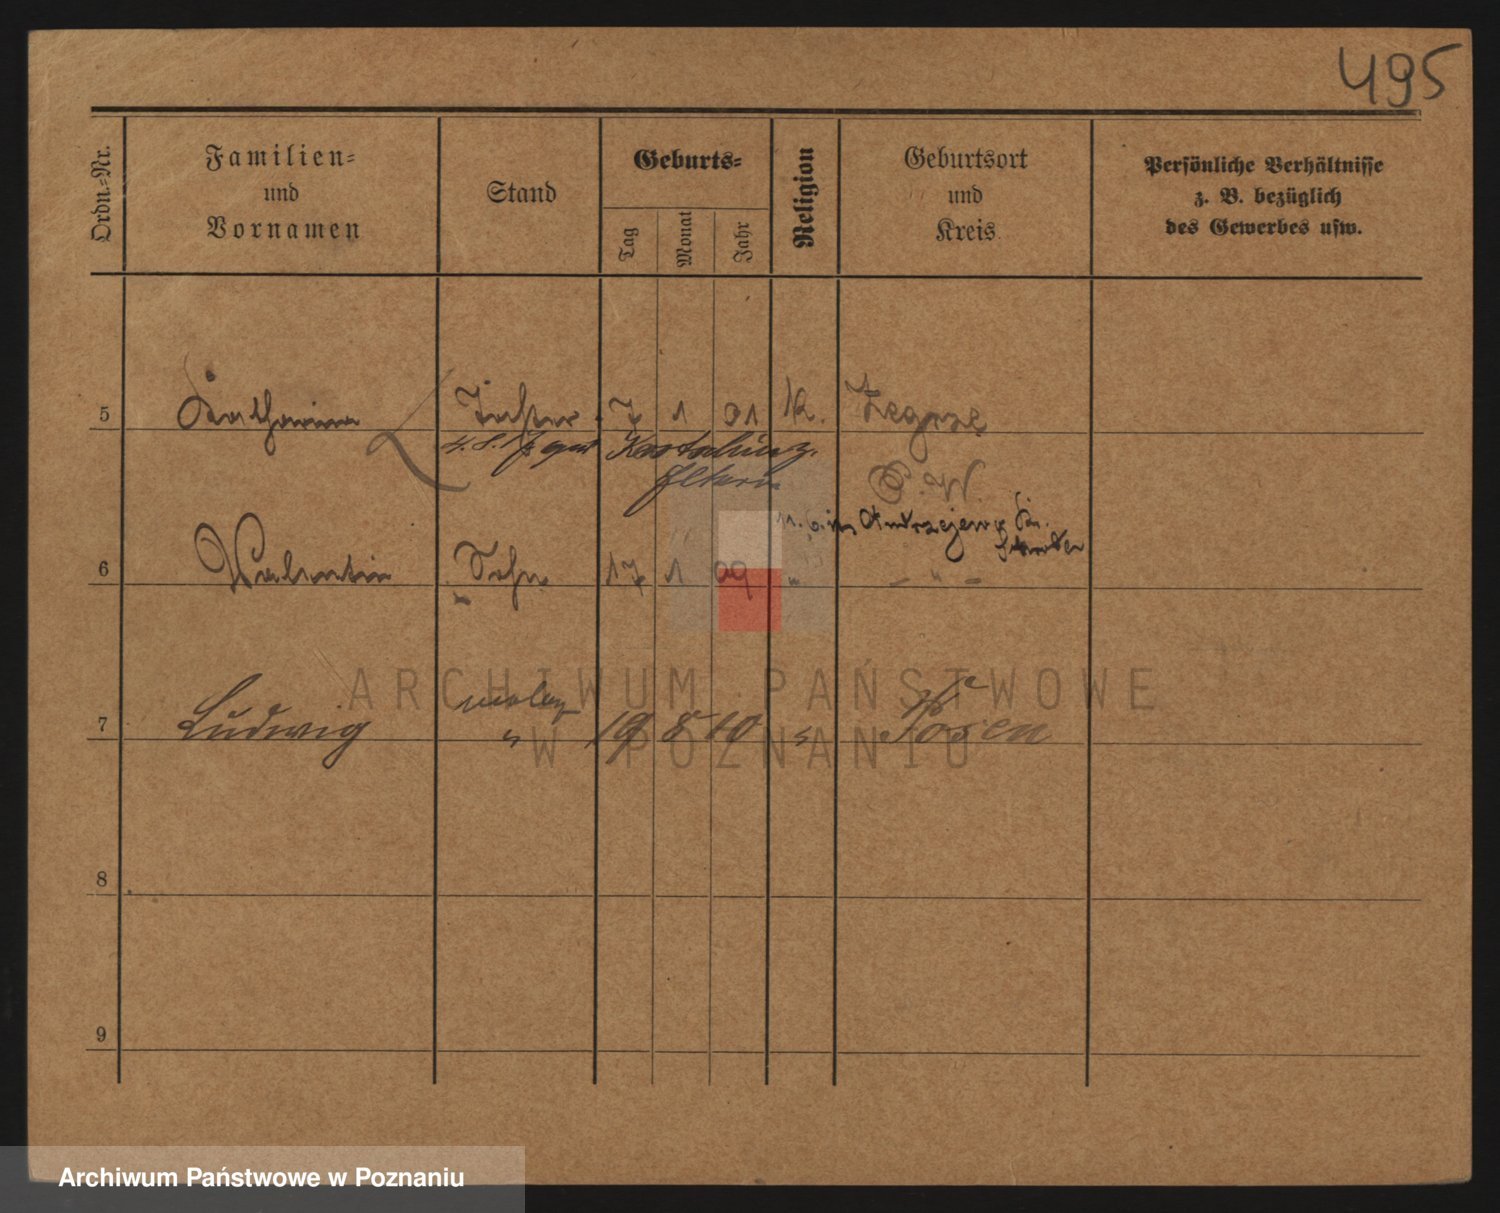 495
Ordn.-Nr.
Familien-
und
Vornamen
Stand
Geburts-
Tag
Monat
Jahr
Religion
Geburtsort
und
Kreis
Persönliche Verhältnisse
z. B. bezüglich
des Gewerbes usw.
5 Katharina Tochter 7 1 01 k. Zegrze
Eltern
11. 6. in Andrzejewo
6 Valentin Sohn 17 1 09 " - " -
7 Ludwig " 19 8 10 " Posen
8
9
ARCHIWUM PAŃSTWOWE
W POZNANIU
Archiwum Państwowe w Poznaniu